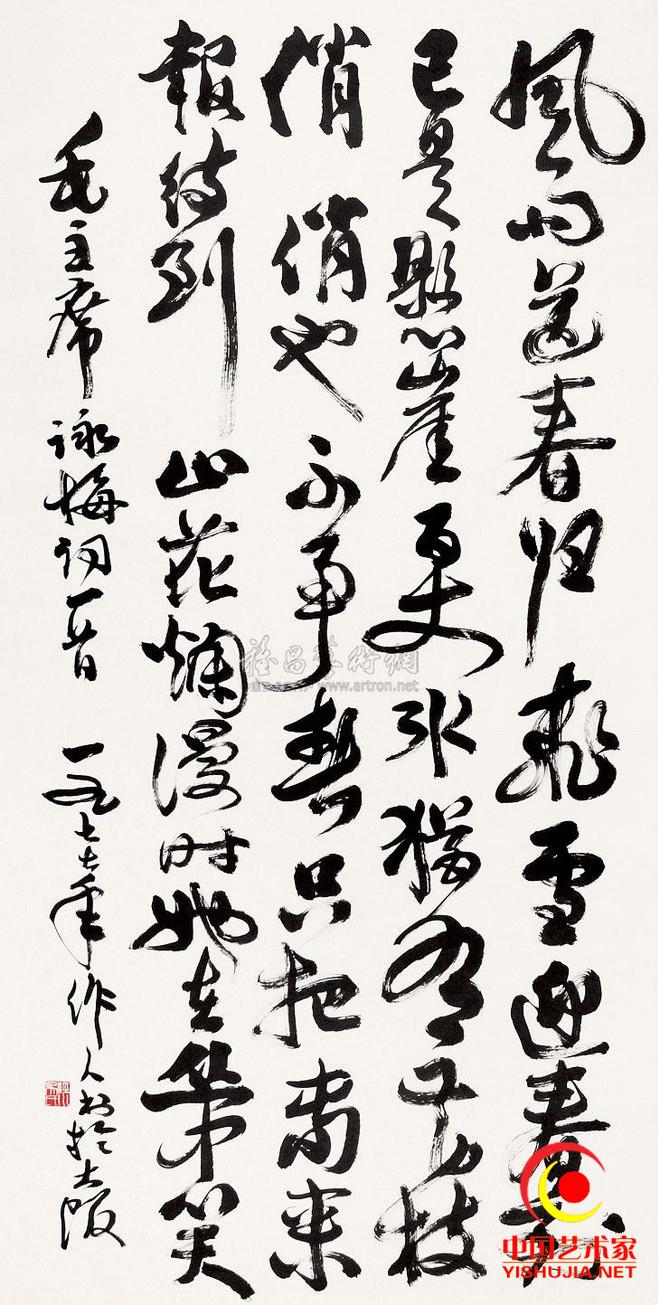 風雨送春归飛雪迎春到
已是懸崖百丈冰猶有花枝
俏俏也不争春只把春来
報待到山花爛漫时她在丛中笑
毛主席詠梅词一首 一九七七年作人书於大阪
雅昌藝術網
www.artron.net
中国艺术家
YISHUJIA.NET